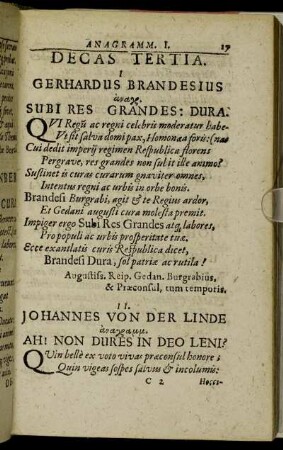 ANAGRAMM. I. 19
DECAS TERTIA.
I
GERHARDUS BRANDESIUS
ἀναγρ.
SUBI RES GRANDES: DURA.
QVI Regũ ac regni celebris moderatur habe-
Vt sit salva domi pax, Homonœa foris: (nas
Cui dedit imperij regimen Respublica florens
Pergrave, res grandes non subit ille animo?
Sustinet is curas curarum gnaviter omnes,
Intentus regni ac urbis in orbe bonis.
Brandesi Burgrabi, agit & te Regius ardor,
Et Gedani augusti cura molesta premit.
Impiger ergo Subi Res Grandes atq; labores,
Pro populi ac urbis prosperitate tuæ.
Ecce exantlatis curis Respublica dicet,
Brandesi Dura, sol patriæ ac rutila!
Augustiss. Reip. Gedan. Burgrabius,
& Præconsul, tum temporis.
II.
JOHANNES VON DER LINDE
ἀναγραμμ.
AH! NON DURES IN DEO LENI?
QUin bellè ex voto vivas præconsul honore;
Quin vigeas sospes salvus & incolumis:
C 2 Hocce-